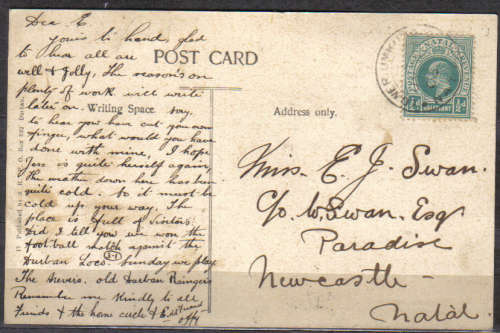 Dea E.
yours to hand, glad
to hear all are
well & Jolly. The reason's on
plenty of work will write
later on. sorry
to hear you have cut your own
finger, what would you have
done with mine, I hope
Jess is quite herself again
The weather down here has been
quite cold. so it must be
cold up your way. The
place is full of visitors
Did I tell you we won the
football match against the
Durban Locos. Sunday we play
The old Durban Rangers
Remember me Kindly to all
Friends & the home circle &
POST CARD
Writing Space.
Address only.
Miss. E. J. Swan.
C/o W. Swan. Esq
Paradise
Newcastle
Natal.
NATAL